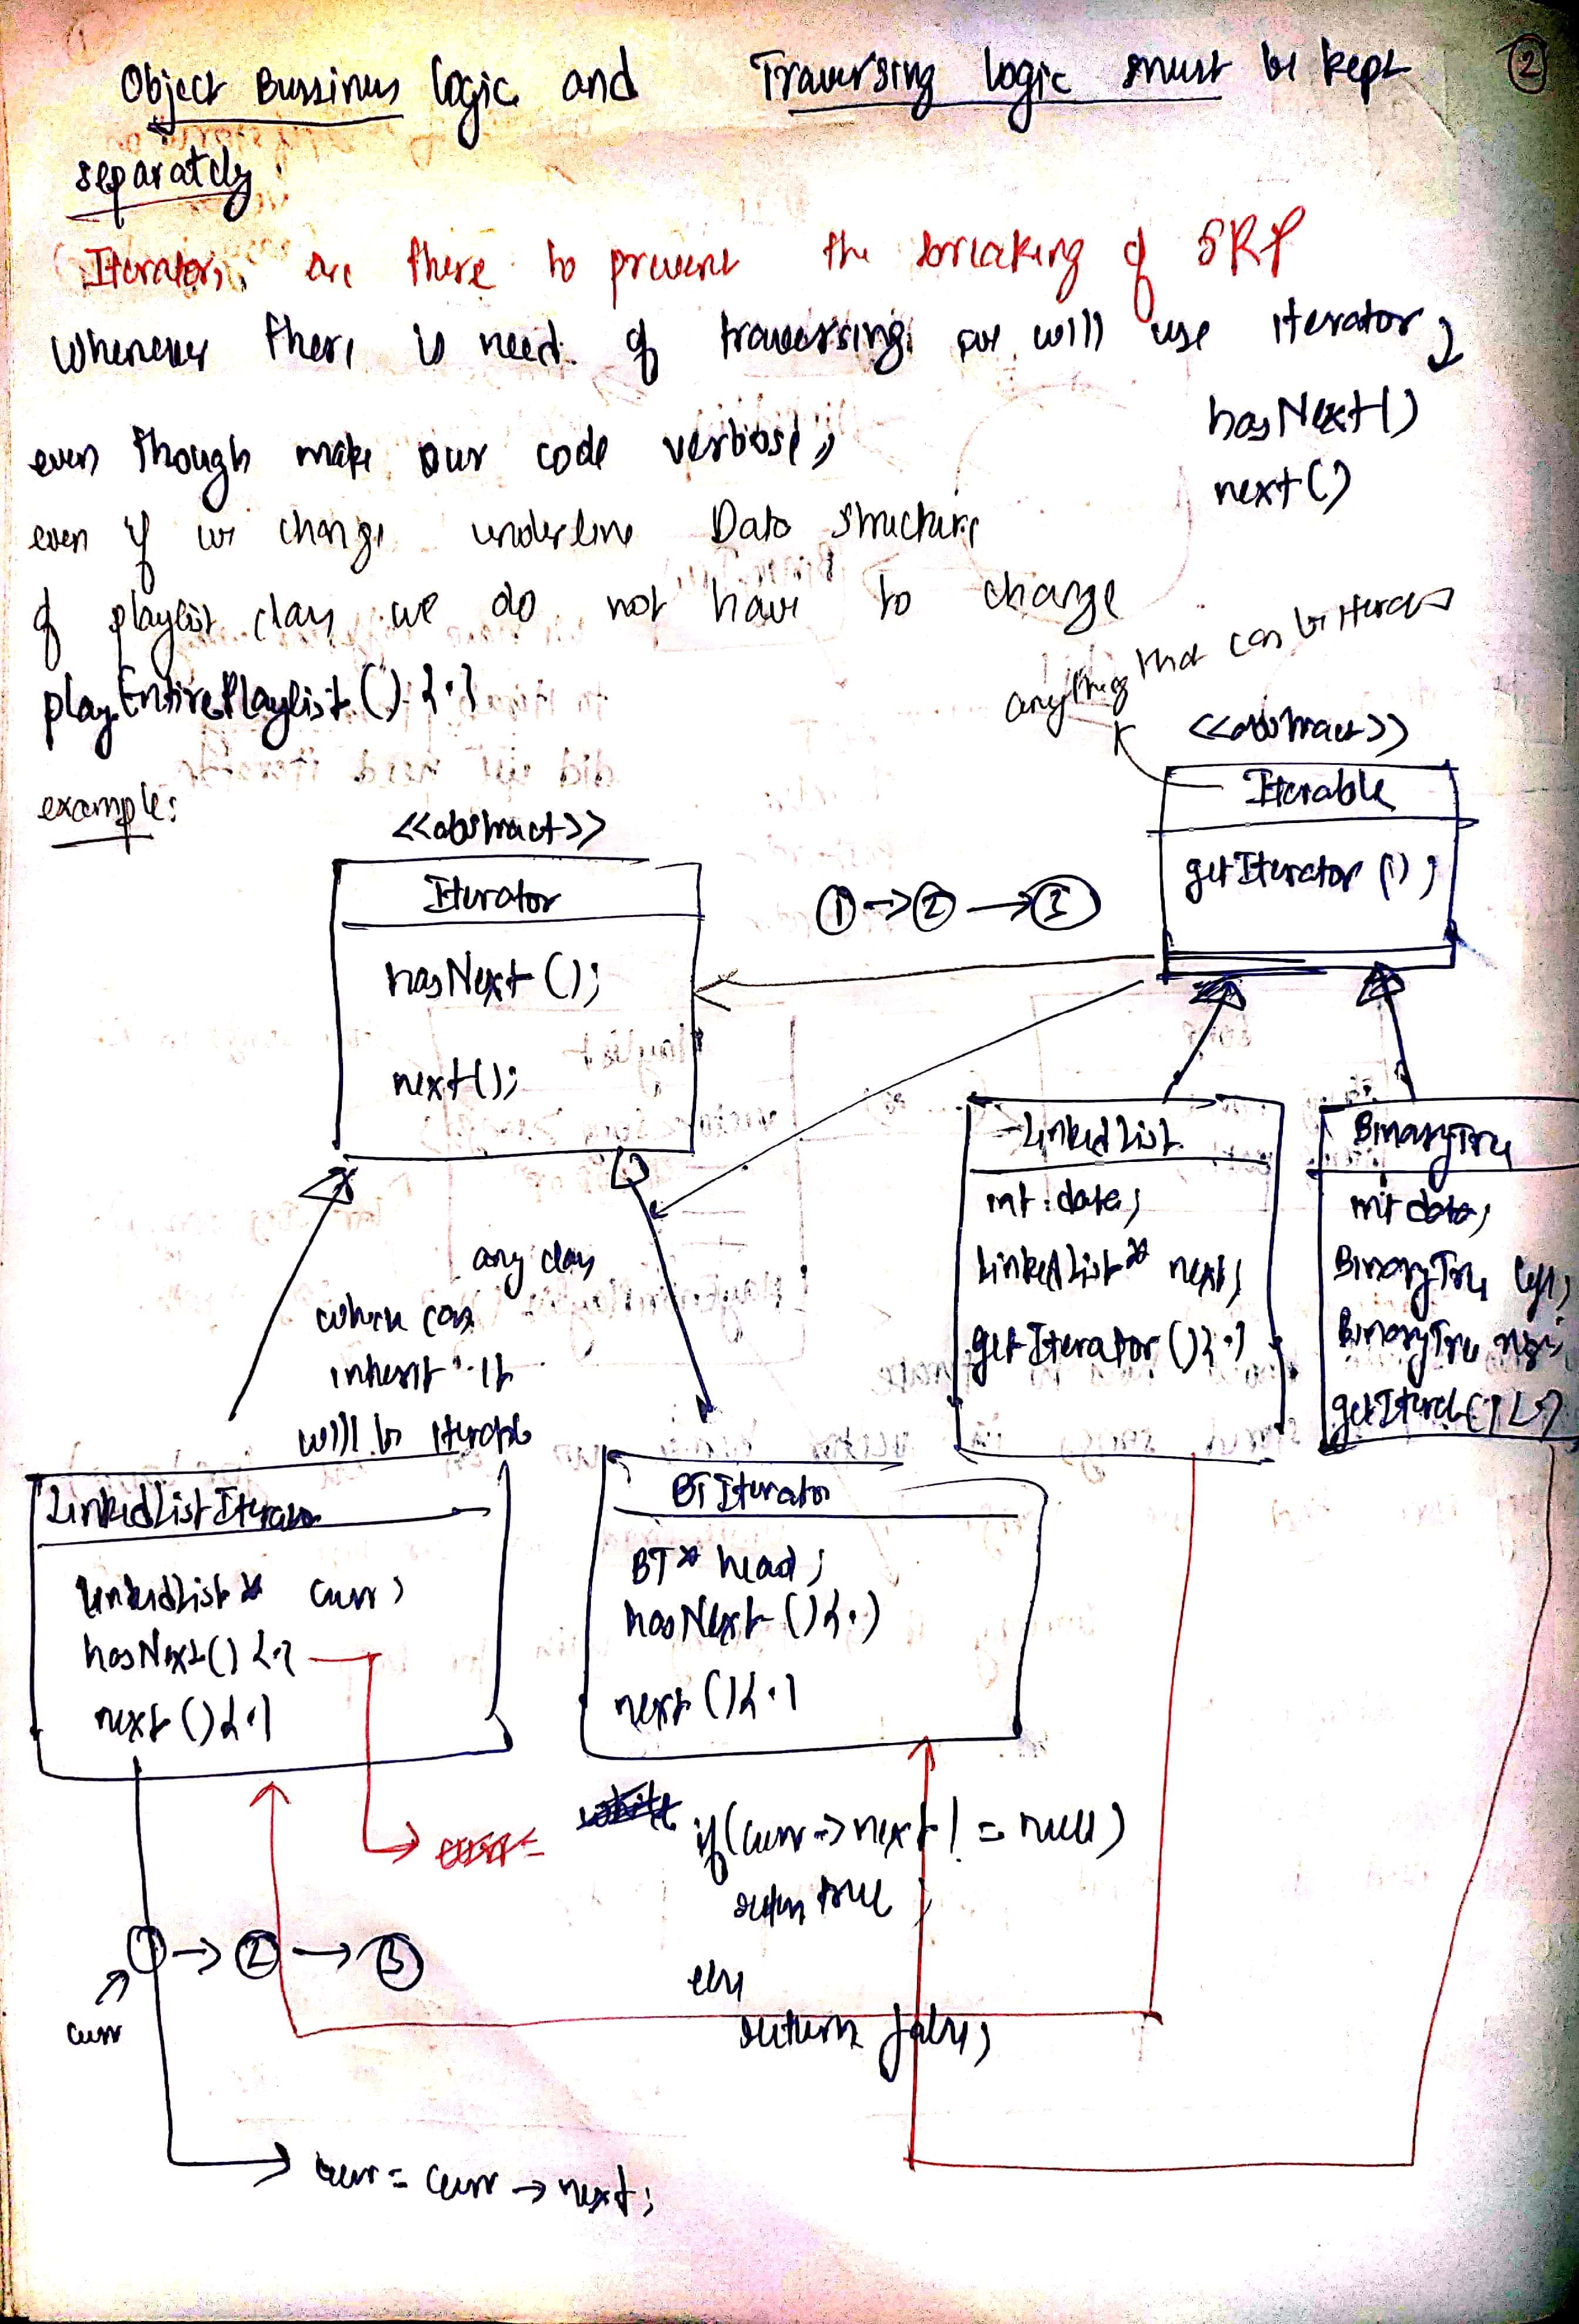 ②
Object Bussinus logic and Traversing logic must be kept
separately
Iterators are there to prevent the breaking of SRP
Whenever there is need of traversing we will use iterator,
hasNext()
next()
even though make our code verbose,
even if we change underline Data structure
of playlist class we do not have to change
playEntirePlaylist() {.}
anything that can be iterated
example:
<<abstract>>
Iterable
getIterator();
<<abstract>>
Iterator
hasNext();
next();
① -> ② -> ③
LinkedList
int data;
LinkedList* next;
getIterator(){.}
BinaryTree
int data;
BinaryTree left;
BinaryTree
any class
which can
inherit it
will be iterable
LinkedListIterator
LinkedList* curr;
hasNext(){.}
next(){.}
BTIterator
BT* head;
hasNext(){.}
next(){.}
if(curr->next != null)
return true;
else
return false;
① -> ② -> ③
curr
curr = curr -> next;